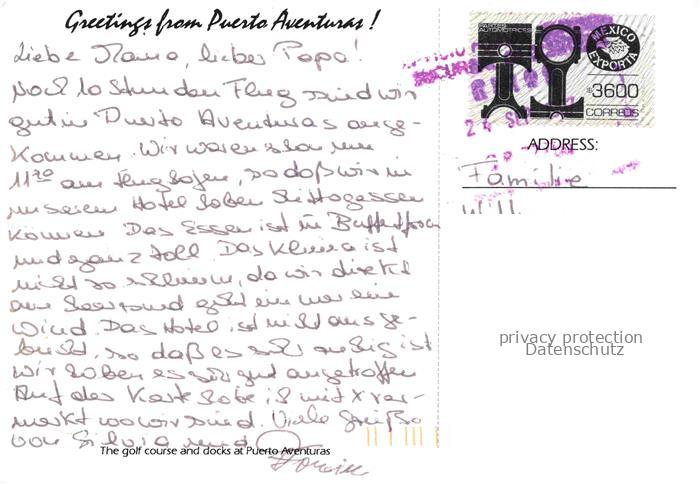 Greetings from Puerto Aventuras !
Liebe Mama, lieber Papa!
Nach 10 Stunden Flug sind wir
gut in Puerto Aventuras ange-
kommen. Wir waren schon um
11³⁰ am Flughafen, so daß wir in
unserem Hotel haben Mittagessen
können. Das Essen ist in Buffetform
und ganz toll. Das Klima ist
nicht so schlimm, da wir direkt
am Seerand geht immer ein
Wind. Das Hotel ist nicht ausge-
bucht, so daß es sehr ruhig ist
Wir haben es sehr gut angetroffen
Auf der Karte habe ich mit X ver-
merkt wo wir sind. Viele Grüße
von Silvia und
The golf course and docks at Puerto Aventuras
PARTES
AUTOMOTRICES
MEXICO
EXPORTA
$3600
CORREOS
ADDRESS:
Familie
privacy protection
Datenschutz